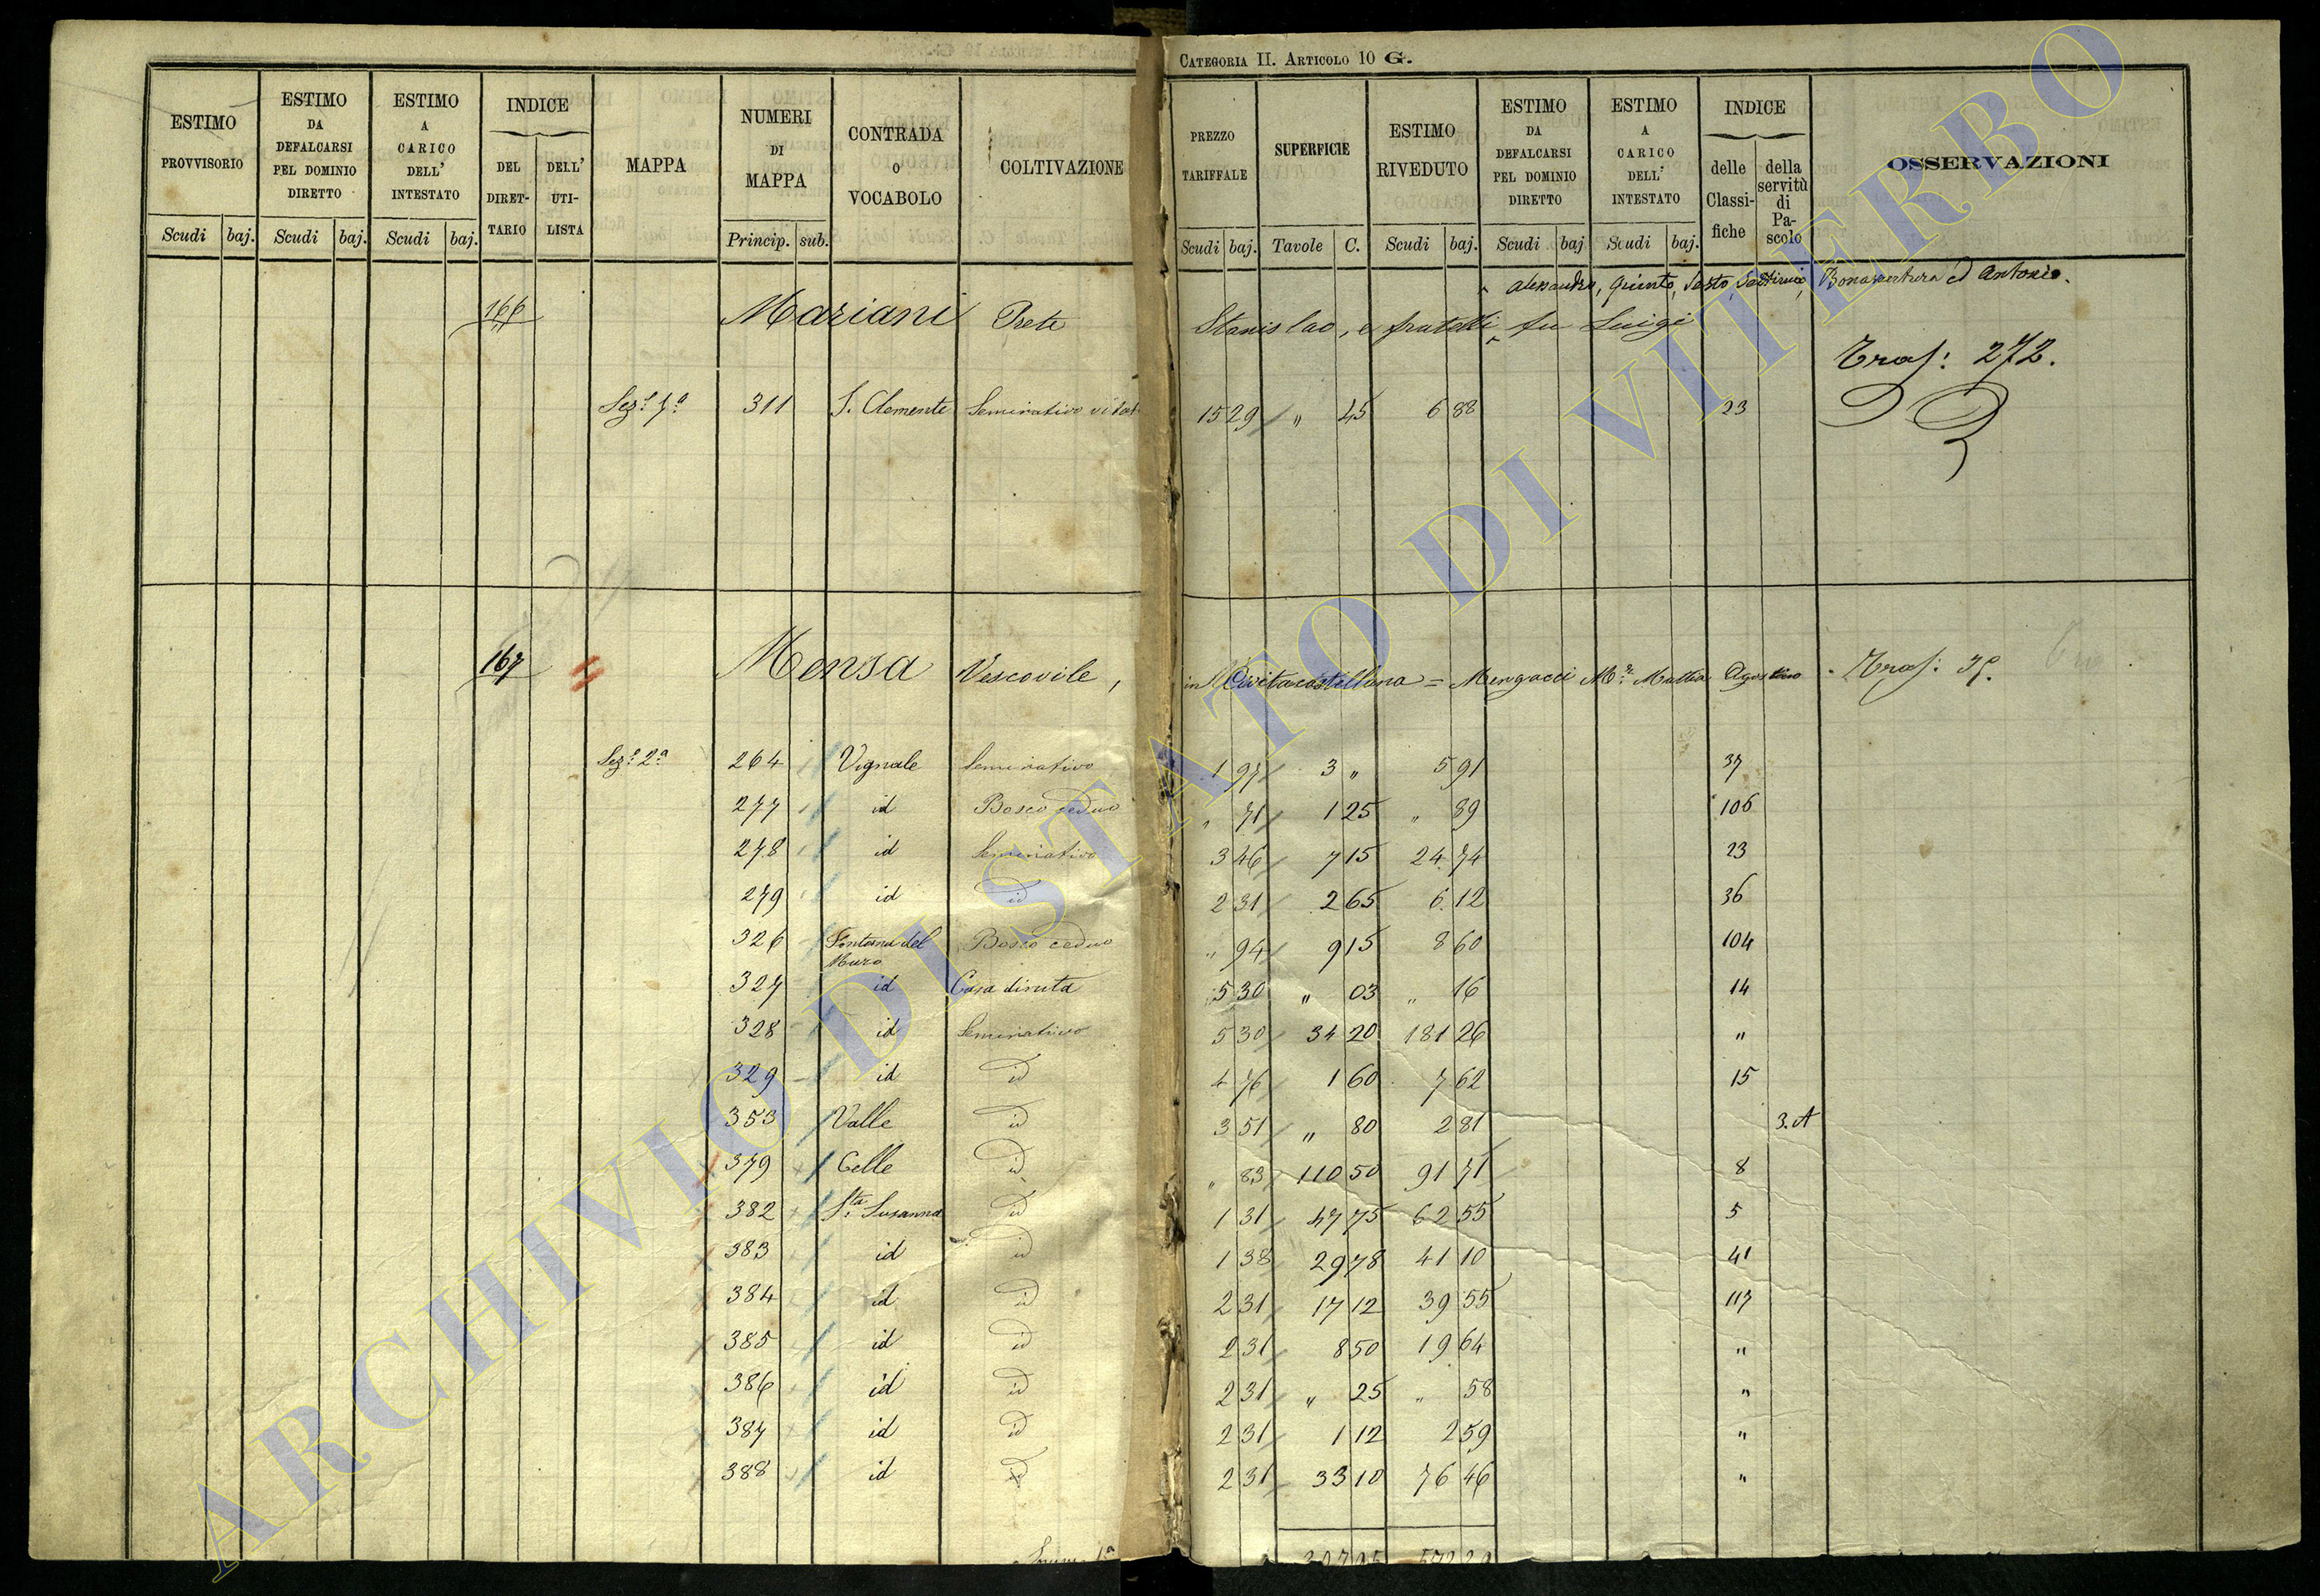 CATEGORIA II. ARTICOLO 10 G.
ESTIMO PROVVISORIO
ESTIMO DA DEFALCARSI PEL DOMINIO DIRETTO
ESTIMO A CARICO DELL' INTESTATO
INDICE
DEL DIRET-TARIO
DELL' UTI-LISTA
MAPPA
NUMERI DI MAPPA
CONTRADA O VOCABOLO
COLTIVAZIONE
PREZZO TARIFFALE
SUPERFICIE
ESTIMO RIVEDUTO
ESTIMO DA DEFALCARSI PEL DOMINIO DIRETTO
ESTIMO A CARICO DELL' INTESTATO
INDICE
delle Classi-fiche
della servitù di Pa-scolo
OSSERVAZIONI
Scudi baj. Scudi baj. Scudi baj. Princip. sub. Scudi baj. Tavole C. Scudi baj. Scudi baj Scudi baj.
Alessandro, Quinto, Sesto, Bonaventura ed Antonio.
166 Mariani Prete Stanislao, e fratelli fu Luigi
Traſ: 272.
Sez.e 1.a 311 S. Clemente Seminativo vitat 15 29 " 45 6 88 23
167 Mensa Vescovile, in Civitacastellana = Mengacci M.r Mattia Agostino - Traſ:
Sez.e 2.a 264 Vignale Seminativo 1 97 3 " 5 91 37
277 id Bosco ceduo " 71 1 25 " 89 106
278 id Seminativo 3 46 7 15 24 74 23
279 id id 2 31 2 65 6 12 36
326 Fontana del Muro Bosco ceduo " 94 9 15 8 60 104
327 id Casa diruta 5 30 " 03 " 16 14
328 id Seminativo 5 30 34 20 181 26 "
329 id id 4 76 1 60 7 62 15
353 Valle id 3 51 " 80 2 81 3.A
379 Celle id " 83 110 50 91 71 8
382 S.ta Susanna id 1 31 47 75 62 55 5
383 id id 1 38 29 78 41 10 41
384 id id 2 31 17 12 39 55 117
385 id id 2 31 8 50 19 64 "
386 id id 2 31 " 25 " 58 "
387 id id 2 31 1 12 2 59 "
388 id id 2 31 33 10 76 46 "
ARCHIVIO DI STATO DI VITERBO